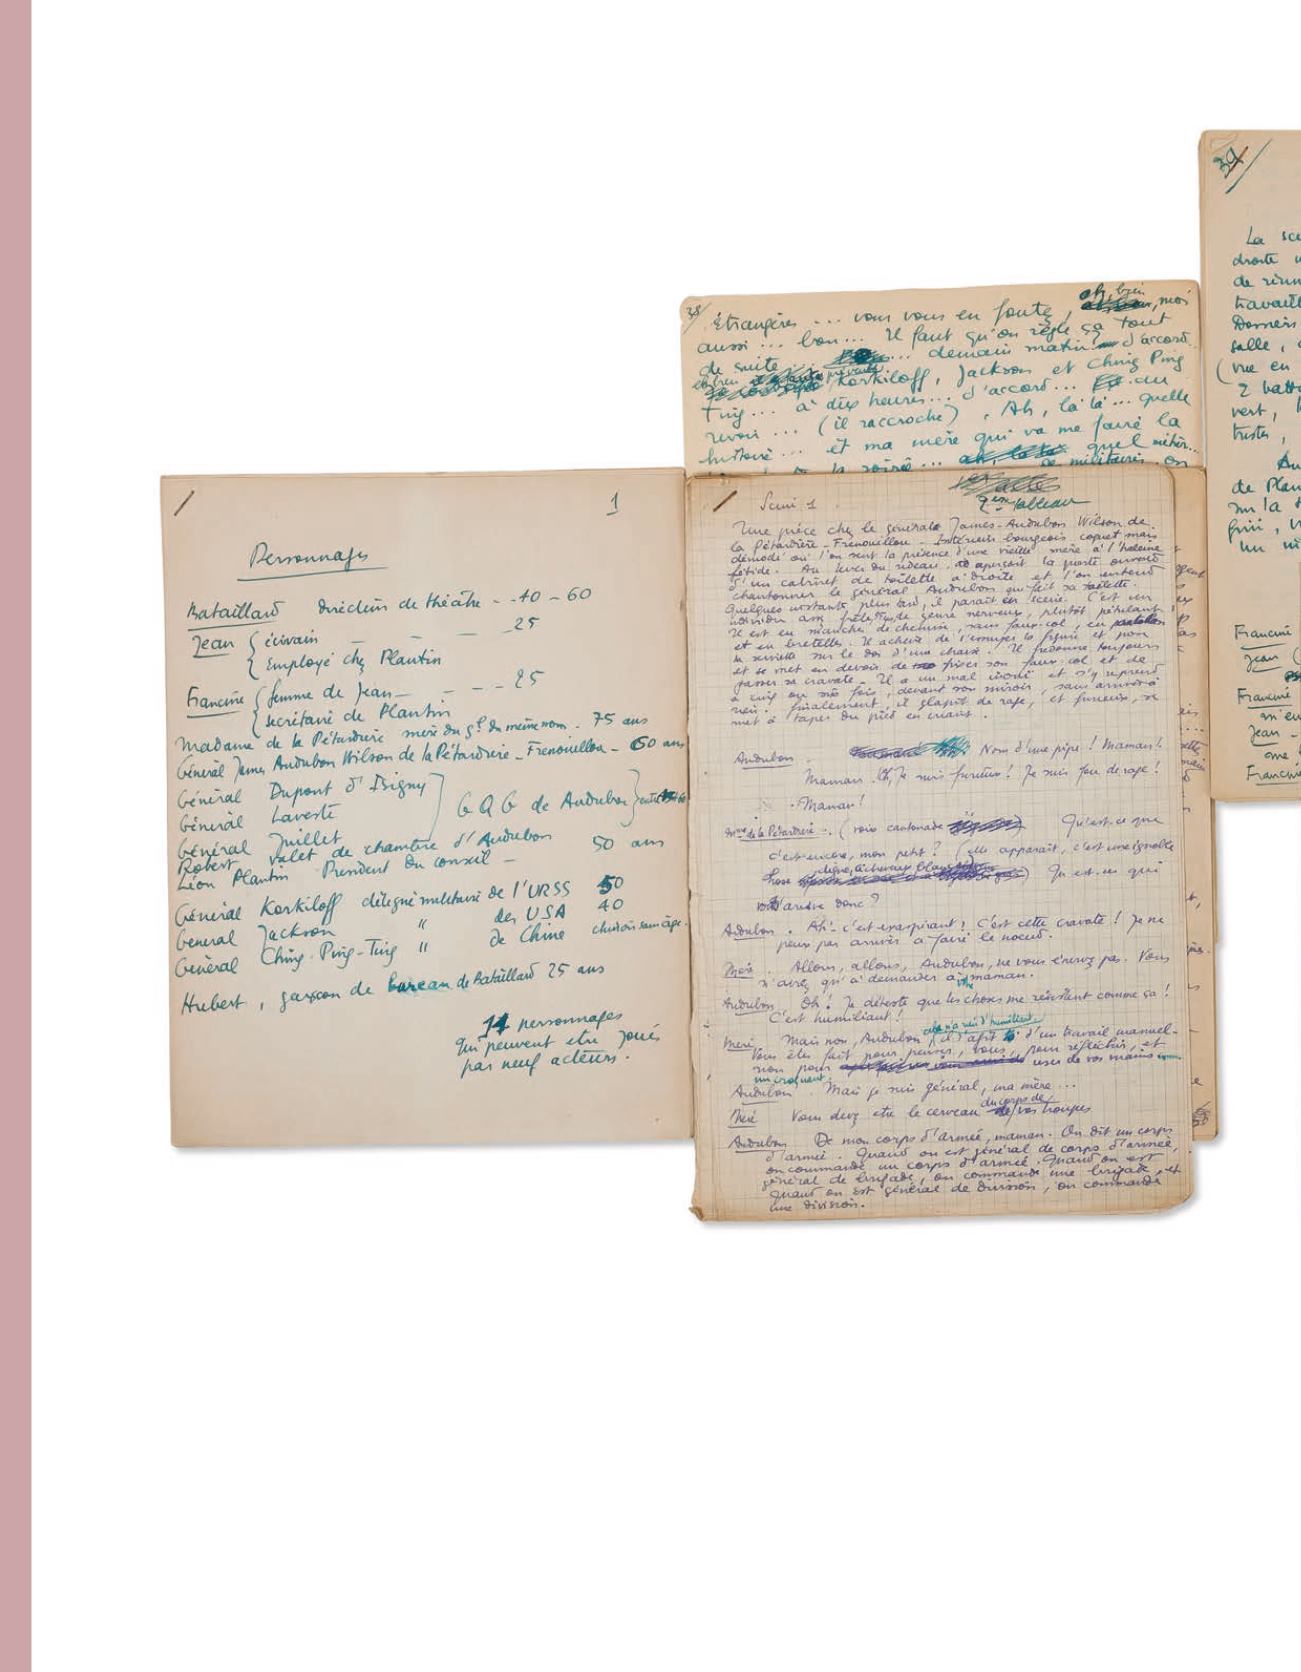 1
Personnages
Bataillard directeur de théâtre - - 40 - 60
Jean { écrivain - - - 25
{ employé chez Plantin
Francine { femme de Jean - - - - 25
{ secrétaire de Plantin
Madame de la Pétardière mère du gal du même nom - 75 ans
Général James Audubon Wilson de la Pétardière - Frenouillou - 60 ans
Général Dupont d'Isigny
Général Laveste } G Q G de Audubon } entre 60
Général Juillet
Robert valet de chambre d'Audubon
Léon Plantin Président du conseil - 50 ans
Général Korkiloff délégué militaire de l'URSS 50
General Jackson " des USA 40
Général Ching-Ping-Ting " de Chine chinois sans âge.
Hubert, garçon de bureau de Bataillard 25 ans
14 personnages
qui peuvent etre joués
par neuf acteurs.
38/
Étrangères ... vous vous en foutez, ah, bien, moi
aussi ... bon ... Il faut qu'on règle ça tout
de suite ... demain matin! d'accord...
Korkiloff, Jackson et Ching Ping
Ting ... à dix heures ... d'accord ... au
revoir ... (il raccroche). Ah, la la ... quelle
histoire ... et ma mère qui va me faire la
la soirée ... quel métier...
militaires on
Scène 1
2ème tableau
Une pièce chez le général James-Audubon Wilson de
la Pétardière-Frenouillou - Intérieur bourgeois coquet mais
démodé où l'on sent la présence d'une vieille mère à l'haleine
fétide. Au lever du rideau on aperçoit la porte ouverte
d'un cabinet de toilette à droite et l'on entend
chantonner le général Audubon qui fait sa toilette.
Quelques instants plus tard, il paraît en scène. C'est un
individu assez frêle, de genre nerveux, plutôt pétulant.
Il est en manches de chemise, sans faux-col, en pantalon
et en bretelles. Il achève de s'essuyer la figure et pose
la serviette sur le dos d'une chaise. Il fredonne toujours
et se met en devoir de fixer son faux col et de
passer sa cravate. Il a un mal inouï et s'y reprend
à cinq ou six fois, devant son miroir, sans arriver à
rien. Finalement, il glapit de rage, et furieux, se
met à taper du pied en criant.
Audubon. Nom d'une pipe! Maman!
Maman. Oh, Je suis furieux! Je suis fou de rage!
. Maman!
Mme de la Pétardière . (voix cantonade) Qu'est-ce que
c'est encore, mon petit? (elle apparaît, c'est une ignoble
chose digne, à cheveux blancs) Qu'est-ce qui
vous arrive donc?
Audubon . Ah! c'est exaspérant! C'est cette cravate! Je ne
peux pas arriver à faire le noeud.
Mère . Allons, allons, Audubon, ne vous énervez pas. Vous
n'avez qu'à demander à votre maman.
Audubon Oh! Je déteste que les choses me résistent comme ça!
C'est humiliant!
Mère . Mais non, Audubon, cela n'a rien d'humiliant. il s'agit d'un travail manuel.
Vous êtes fait pour penser, vous, pour réfléchir, et
non pour user de vos mains comme
un croquant.
Audubon . Mais je suis général, ma mère ...
Mère Vous devez etre le cerveau du corps de vos troupes
Audubon De mon corps d'armée, maman. On dit un corps
d'armée. Quand on est général de corps d'armée,
on commande un corps d'armée. Quand on est
général de brigade, on commande une brigade, et
quand on est général de division, on commande
une division.
39/
La
droite
de
travail
Derrière
salle,
(vue en
2
vert,
de Plan
sur la
un
Francine
Jean (
Francine
m'en
Jean -
Francine